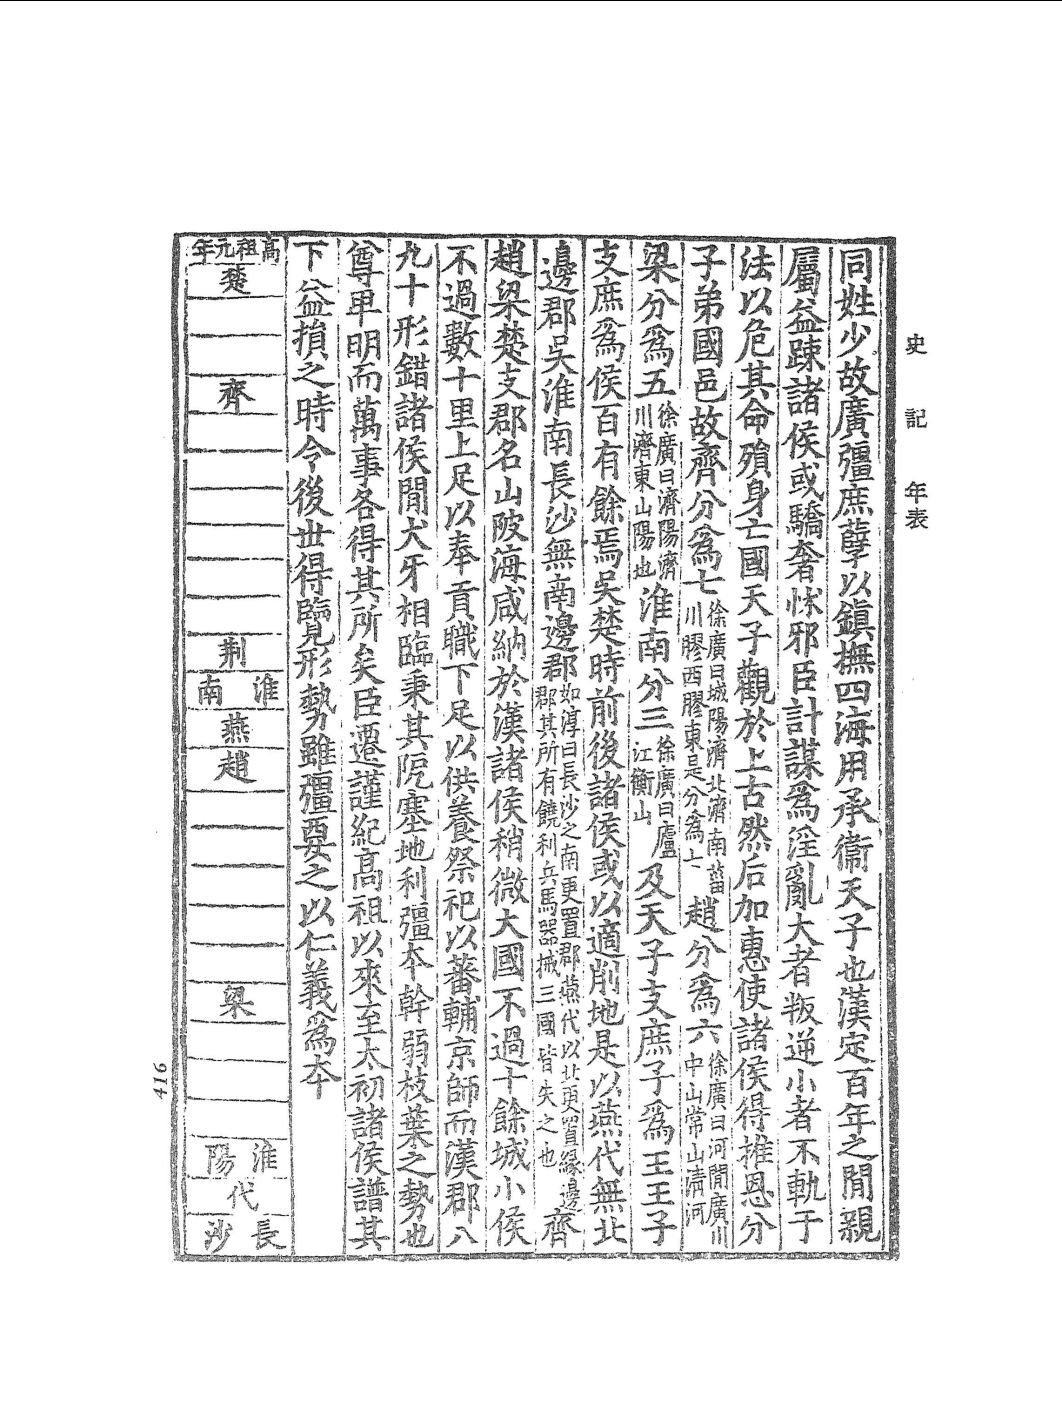 史記 年表
同姓少故廣彊庶孽以鎮撫四海用承衞天子也漢定百年之閒親
屬益踈諸侯或驕奢忕邪臣計謀爲淫亂大者叛逆小者不軌于
法以危其命殞身亡國天子觀於上古然后加惠使諸侯得推恩分
子弟國邑故齊分爲七徐廣曰城陽濟北濟南菑川膠西膠東是分爲七趙分爲六徐廣曰河閒廣川中山常山淸河
梁分爲五徐廣曰濟陽濟川濟東山陽也淮南分三徐廣曰廬江衡山及天子支庶子爲王王子
支庶爲侯百有餘焉吳楚時前後諸侯或以適削地是以燕代無北
邊郡吳淮南長沙無南邊郡如淳曰長沙之南更置郡燕代以北更置緣邊郡其所有饒利兵馬器械三國皆失之也齊
趙梁楚支郡名山陂海咸納於漢諸侯稍微大國不過十餘城小侯
不過數十里上足以奉貢職下足以供養祭祀以蕃輔京師而漢郡八
九十形錯諸侯閒犬牙相臨秉其阨塞地利彊夲幹弱枝葉之勢也
尊卑明而萬事各得其所矣臣遷謹紀高祖以來至太初諸侯譜其
下益損之時令後丗得覽形勢雖彊要之以仁義爲夲
高祖元年
楚
齊
荆
淮南
燕
趙
梁
淮陽
代
長沙
416